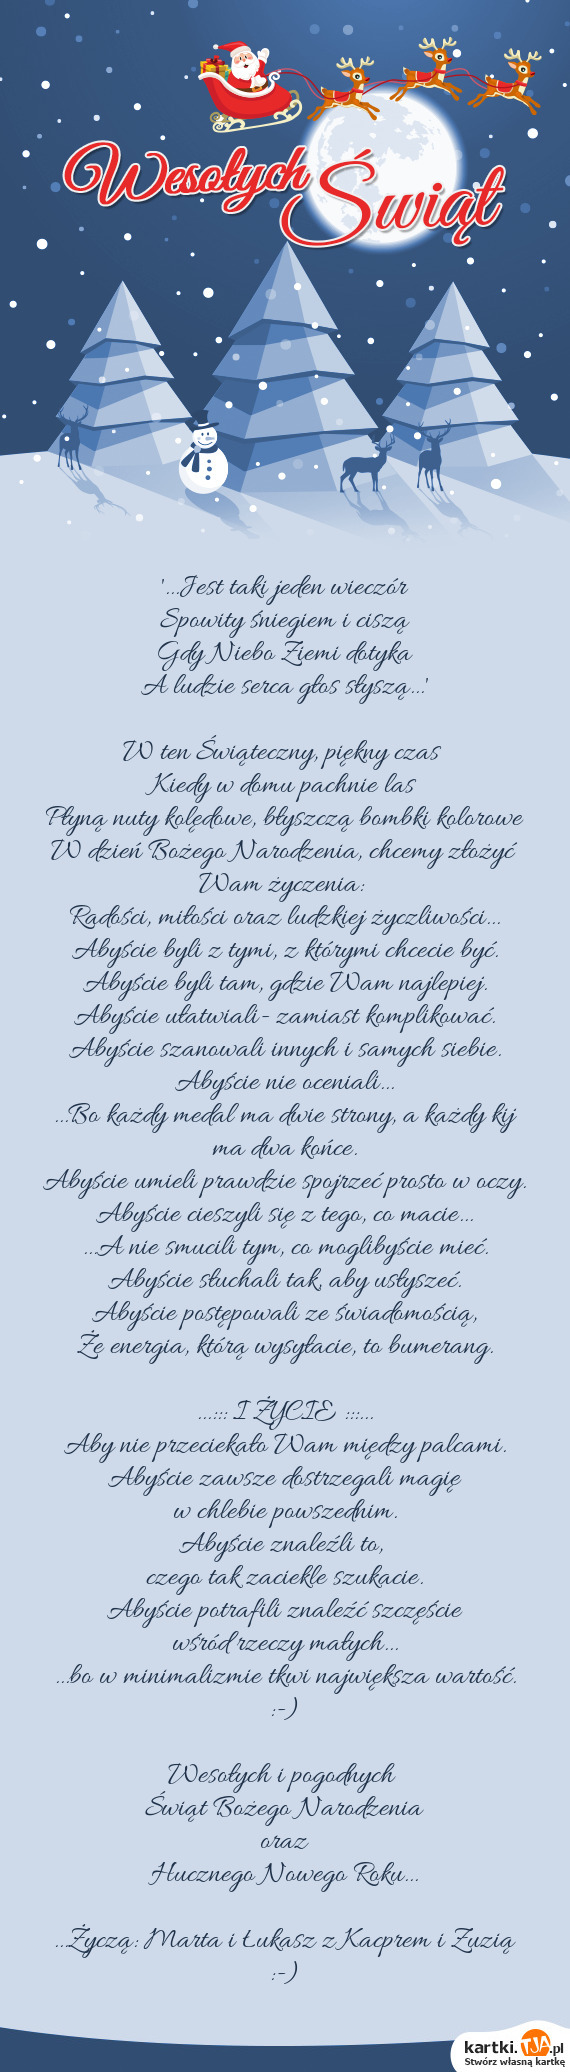 Wesołych Świąt
'...Jest taki jeden wieczór
Spowity śniegiem i ciszą
Gdy Niebo Ziemi dotyka
A ludzie serca głos słyszą...'
W ten Świąteczny, piękny czas
Kiedy w domu pachnie las
Płyną nuty kolędowe, błyszczą bombki kolorowe
W dzień Bożego Narodzenia, chcemy złożyć
Wam życzenia:
Radości, miłości oraz ludzkiej życzliwości...
Abyście byli z tymi, z którymi chcecie być.
Abyście byli tam, gdzie Wam najlepiej.
Abyście ułatwiali- zamiast komplikować.
Abyście szanowali innych i samych siebie.
Abyście nie oceniali...
...Bo każdy medal ma dwie strony, a każdy kij
ma dwa końce.
Abyście umieli prawdzie spojrzeć prosto w oczy.
Abyście cieszyli się z tego, co macie...
...A nie smucili tym, co moglibyście mieć.
Abyście słuchali tak, aby usłyszeć.
Abyście postępowali ze świadomością,
Że energia, którą wysyłacie, to bumerang.
...::: I ŻYCIE :::...
Aby nie przeciekało Wam między palcami.
Abyście zawsze dostrzegali magię
w chlebie powszednim.
Abyście znaleźli to,
czego tak zaciekle szukacie.
Abyście potrafili znaleźć szczęście
wśród rzeczy małych...
...bo w minimalizmie tkwi największa wartość.
:-)
Wesołych i pogodnych
Świąt Bożego Narodzenia
oraz
Hucznego Nowego Roku...
...Życzą: Marta i Łukasz z Kacprem i Zuzią
:-)
kartki.TJA.pl
Stwórz własną kartkę